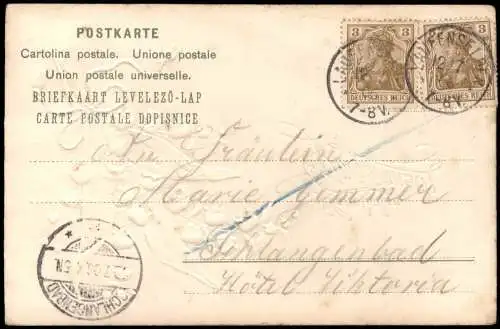 POSTKARTE
Cartolina postale. Unione postale
Union postale universelle.
BRIEFKAART LEVELEZŐ-LAP
CARTE POSTALE DOPISNICE
3 3
DEUTSCHES REICH DEUTSCHES REICH
7-8V.
8V.
An Fräulein
Marie Gemmer
Schlangenbad
Hôtel Viktoria
SCHLANGENBAD